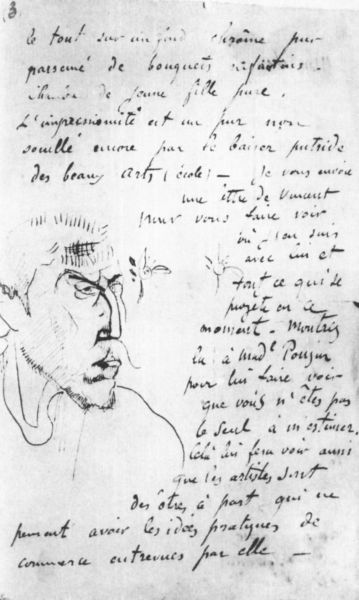 3
le tout sur un fond chrôme pur
parsemé de bouquets enfantins.
Chambre de jeune fille pure.
L'impressioniste est un pur non
souillé encore par le baiser putride
des beaux arts (école) — Je vous envoie
une lettre de Vincent
pour vous faire voir
où j'en suis
avec lui et
tout ce qui se
projete en ce
moment. Montrez
la à Mad
pour lui faire voir
que vous n'êtes pas
le seul à m'estimer.
Celà lui fera voir aussi
que les artistes sont
des êtres à part qui ne
peuvent avoir les idées pratiques de
commerce entrevues par elle —